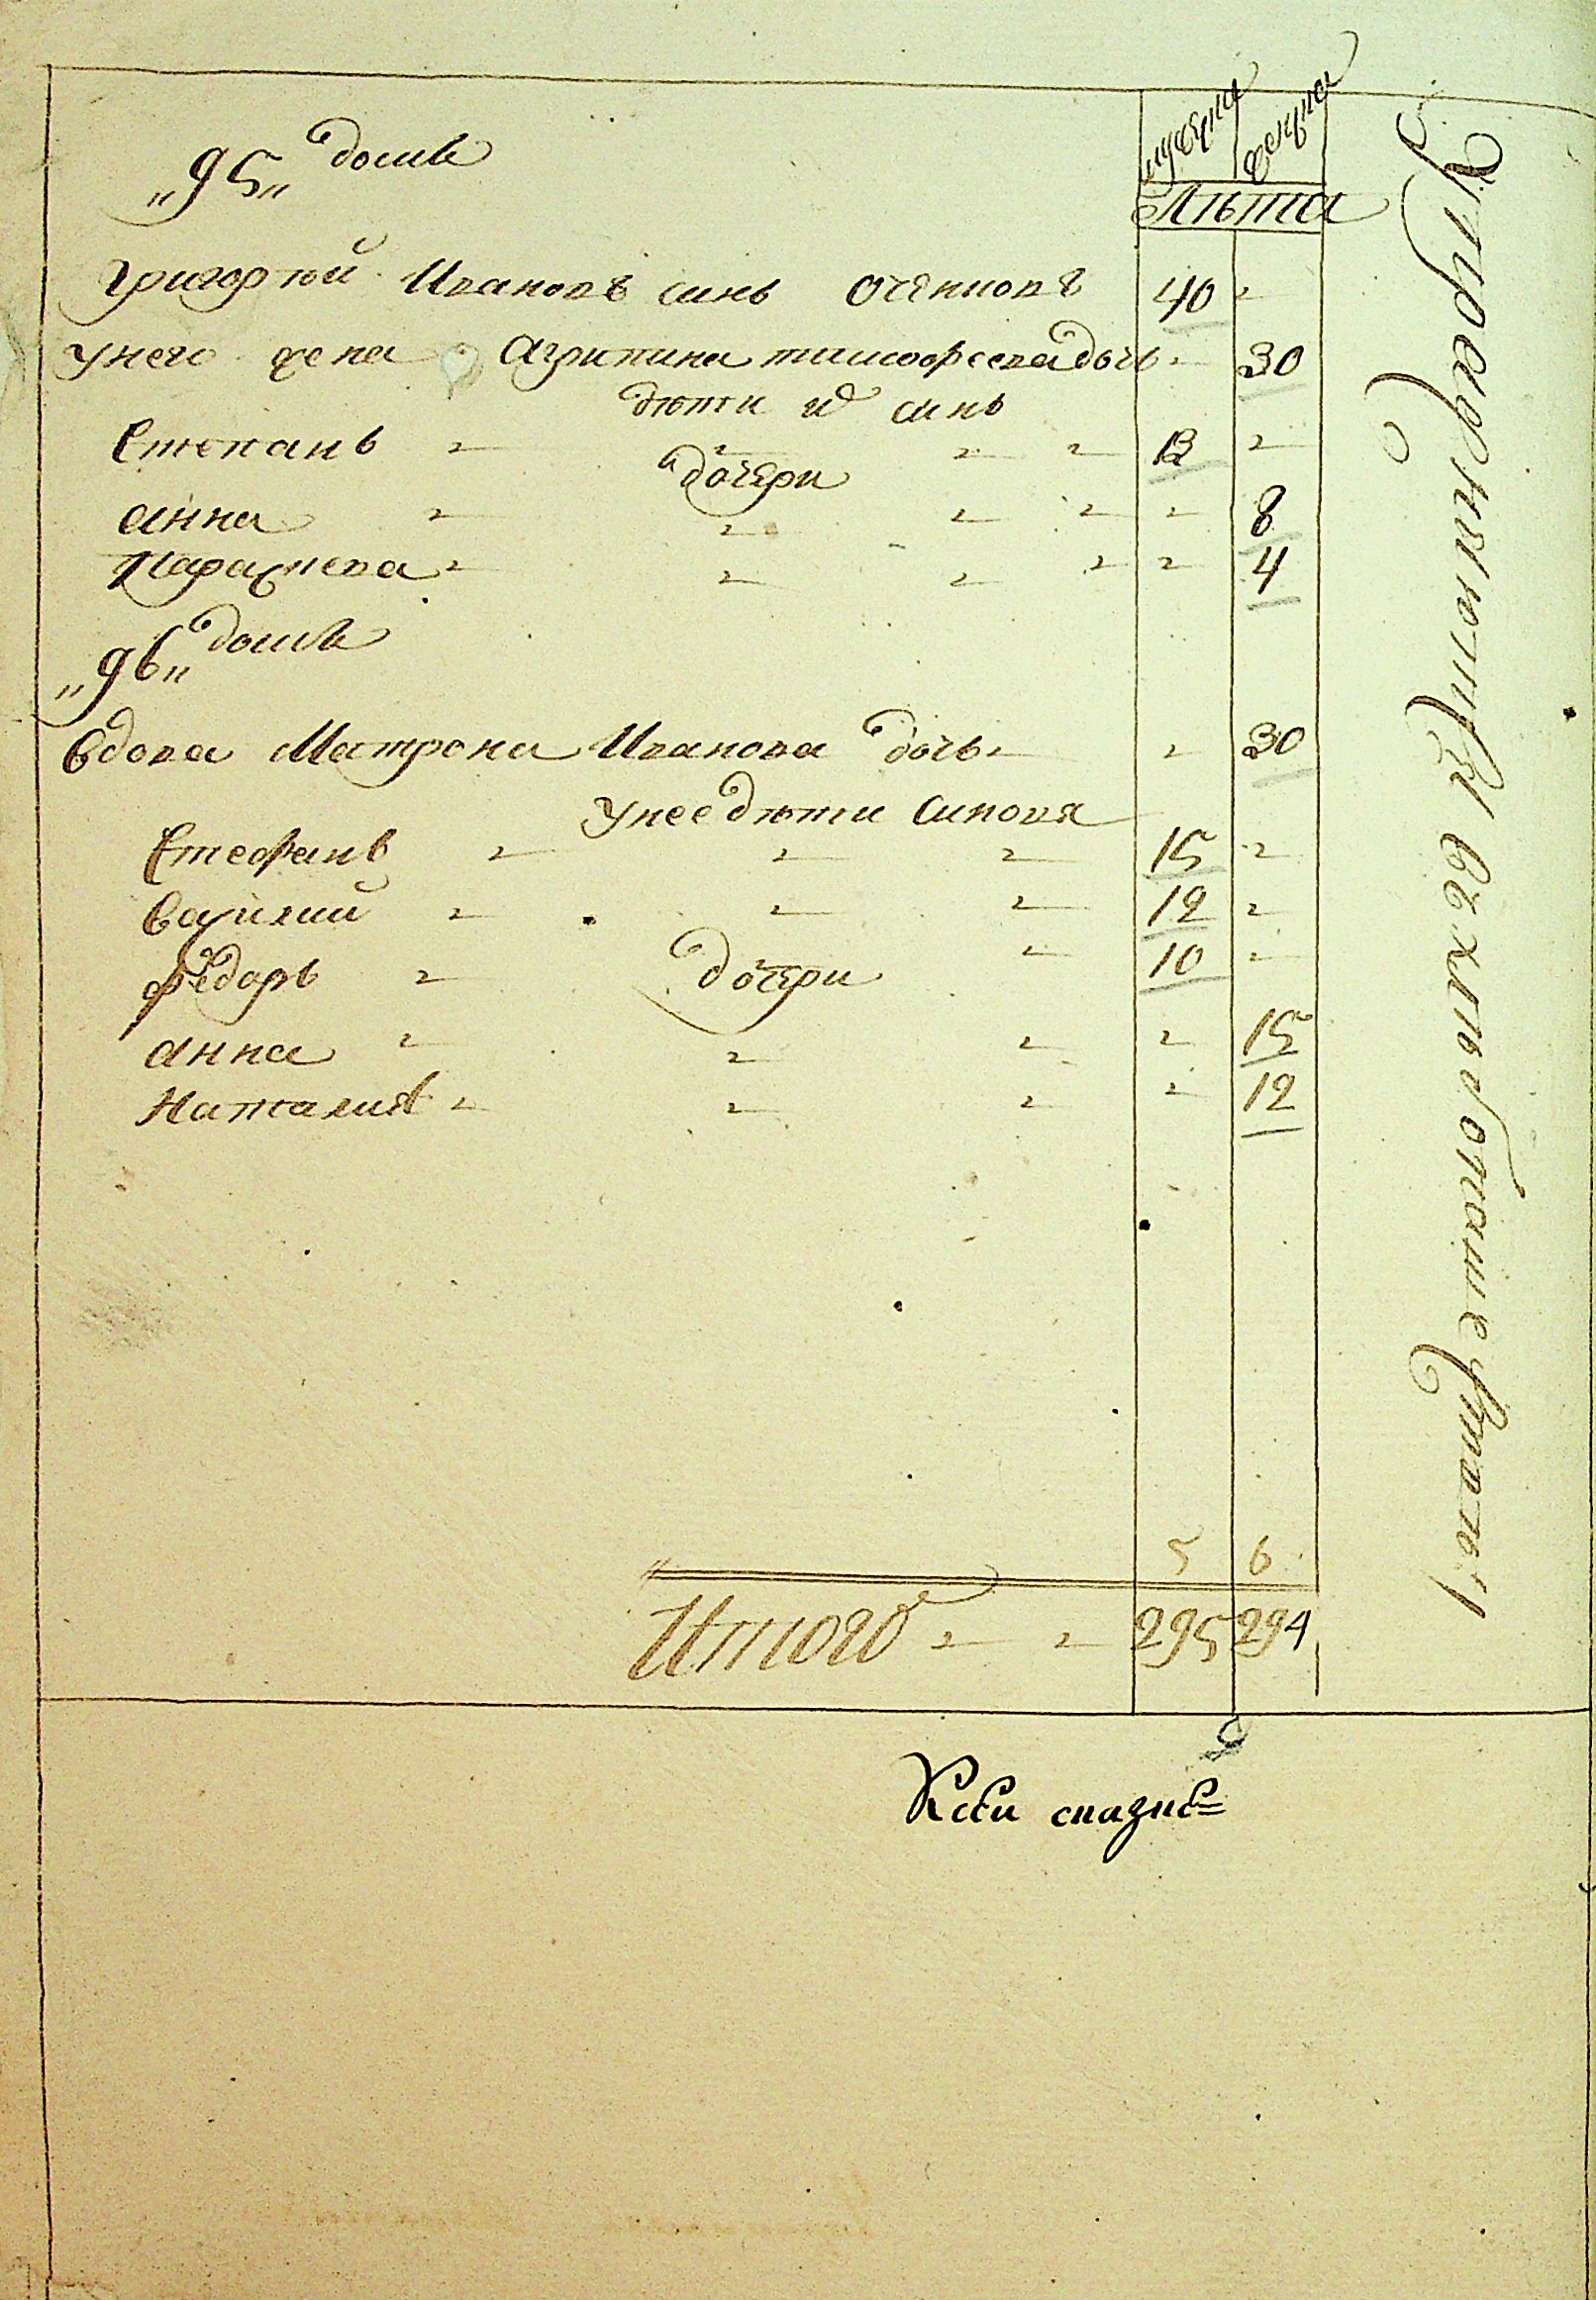 мужеска женска
Лѣта
„95„ домъ
Григорѣй Ивановъ синъ
40 „
У него жена Агрипина тимофеева дочь „ 30
дѣти ихъ синъ
Степанъ „ „ „ „ 13 „
дочери
анна „ „ „ „ „ 8
Параскева „ „ „ „ „ 4
„96„ домъ
Вдова Матрона Иванова дочь „ „ 30
У нее дѣти Синовя
Стефанъ „ „ „ 15 „
Василий „ „ „ 12 „
Федоръ „ „ 10 „
дочери
анна „ „ „ „ 15
Наталия „ „ „ „ 12
5 6
Итого „ „ 295 294
К сеи сказке=